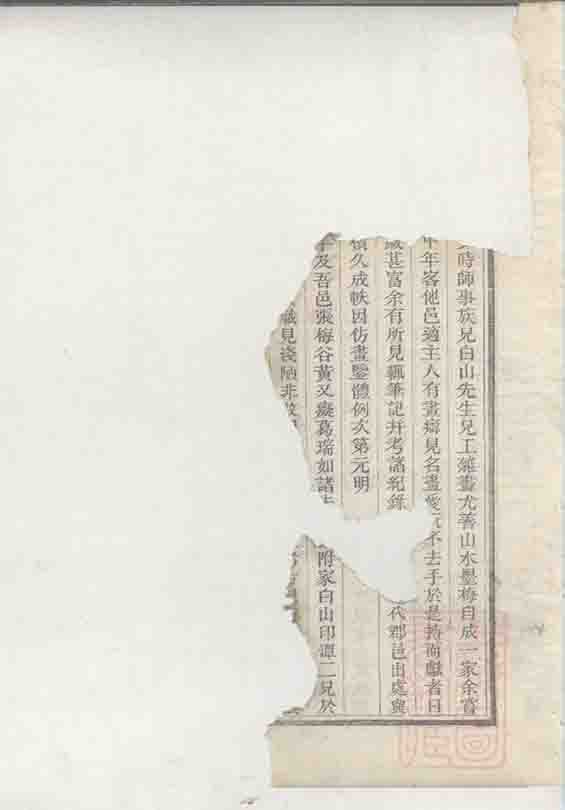 時師事族兄白山先生兄工雜畫尤善山水墨梅自成一家余嘗
年客他邑適主人有畫癖見名畫愛玩不去手於是持而獻者日
甚富余有所見輒筆記并考諸紀錄代郡邑出處與
久成帙因仿畫鑒體例次第元明
及吾邑張梅谷黃又癡葛瑞如諸附家白山印潭二兄於
見淺陋非